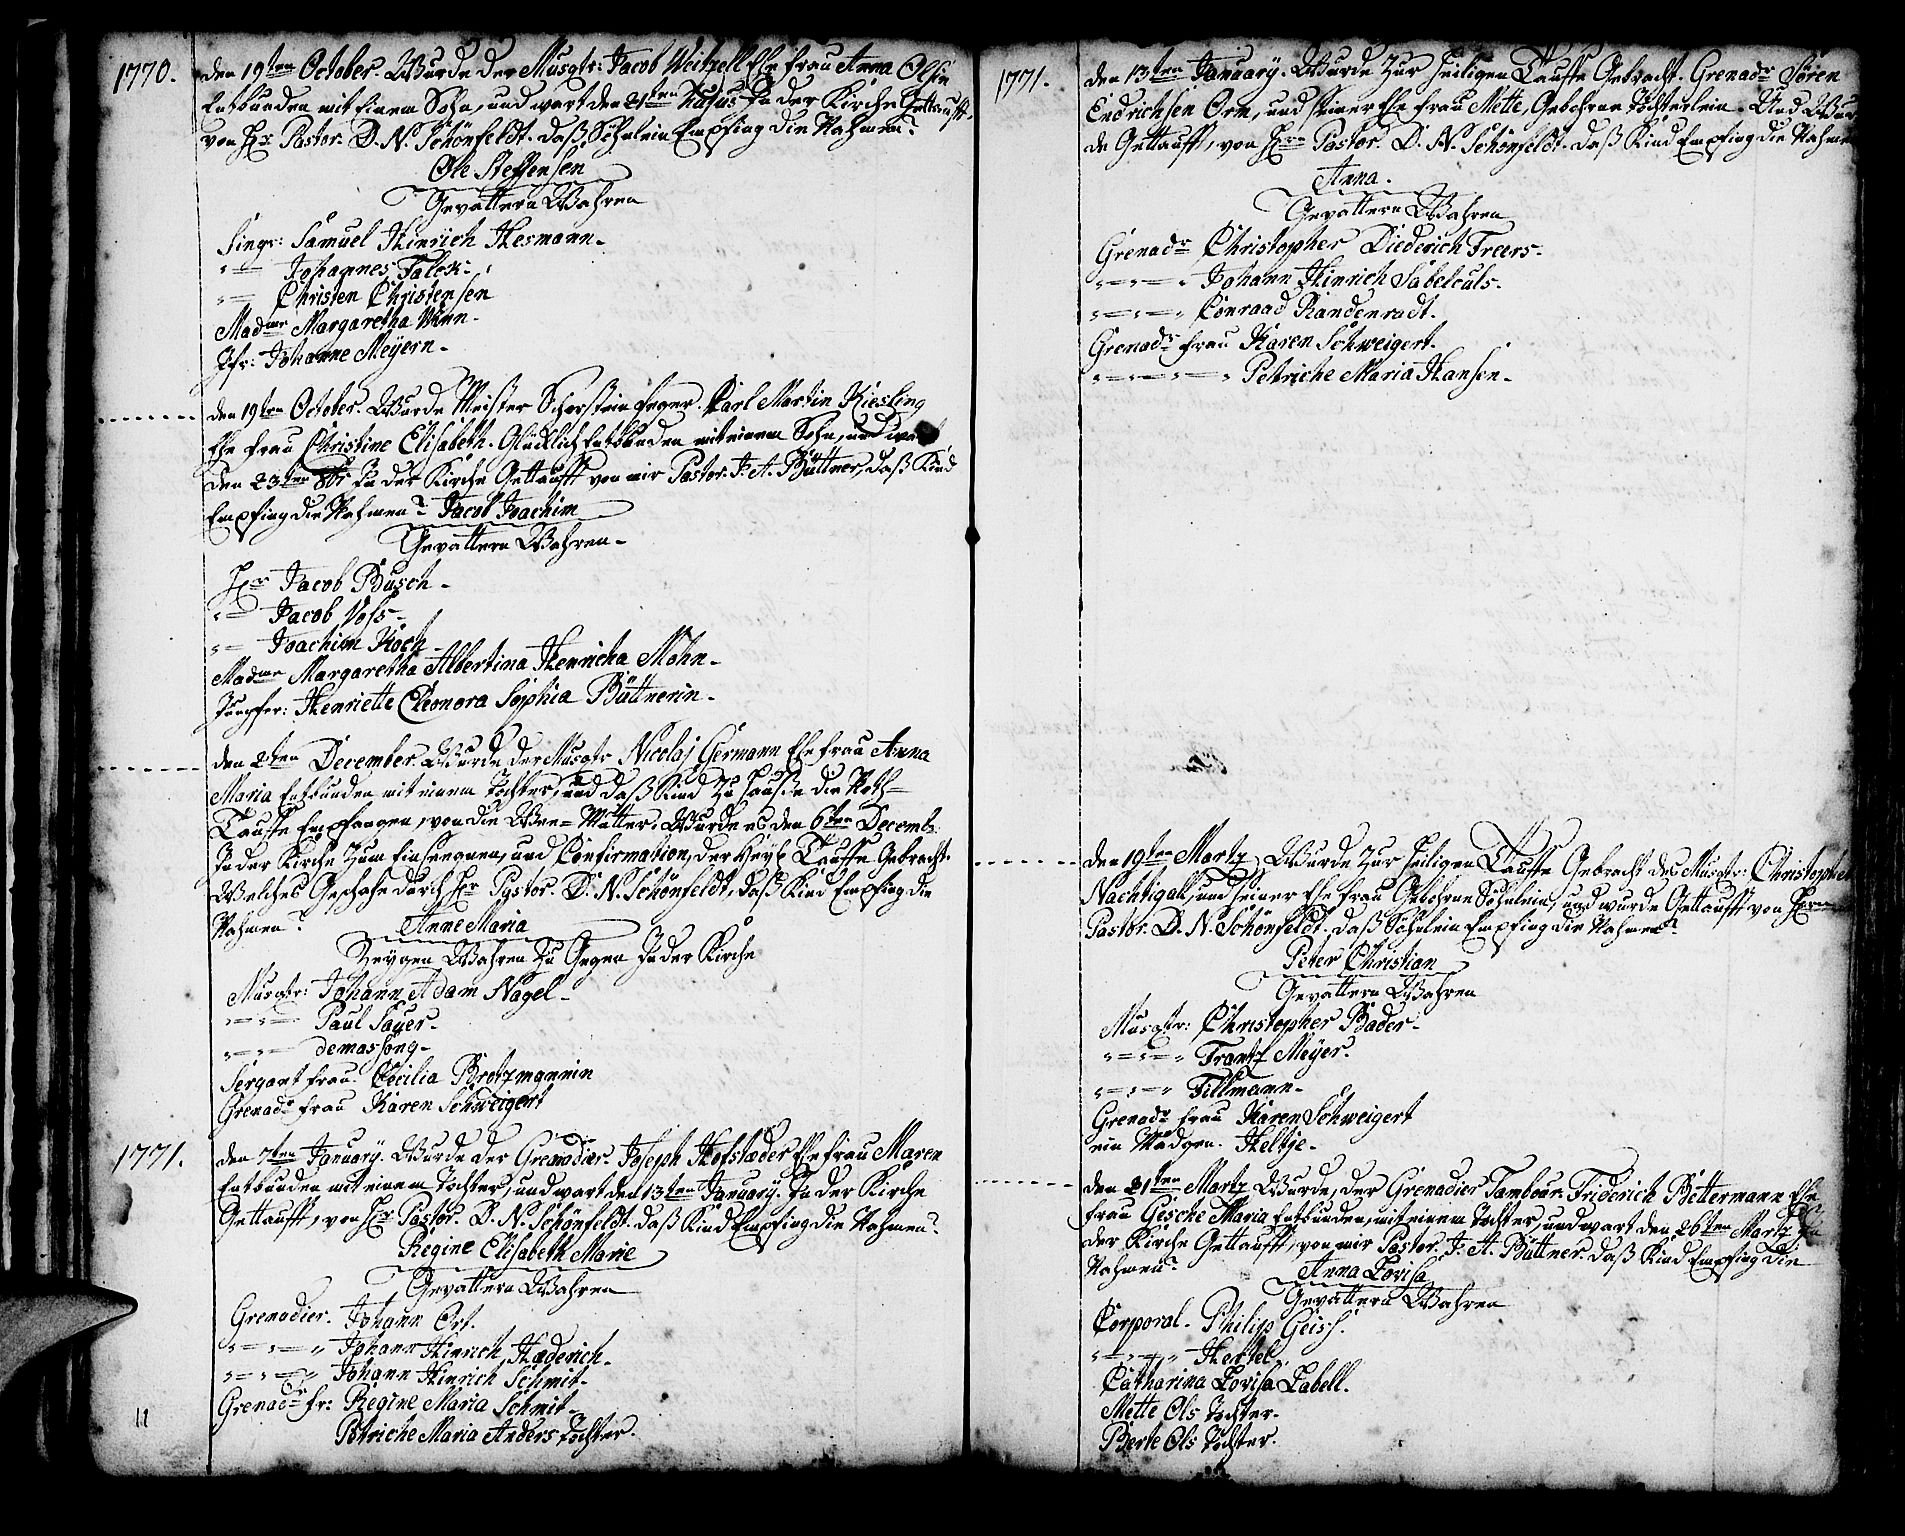 1770. den 19ten October. Wurde der Musqtr: Jacob Weitzell Ehe frau Anna Olsin
Entbunden mit Einem Sohn, und wart den 21ten Hujus In der Kirche Gettaufft,
von Hr Pastor. D. N. Schönfeldt. daß Söhnlein Empfing die Nahmen?
Ole Steffensen
Gevattern Wahren
Singr: Samuel Hinrich Hesmann.
" = Johannes Falck.
" = Christen Christensen
Madme Margaretha Winn.
Jfr: Johanne Meÿern.
den 19ten October. Wurde Meister Schorstein feger. Carl Martin Kiesling
Ehe frau Christine Elisabeth. Glücklich Entbunden mit einem Sohn, und wart
den 23ten 8br In der Kirche Gettaufft von mir Pastor. J. A. Büttner, daß Kind
Empfing die Nahmen? Jacob Joachim
Gevattern Wahren.
Hr Jacob Busch.
" = Jacob Voss.
" = Joachim Koch.
Madme Margaretha Albertina Henricha Mohn.
Jumpfer: Henriette Eleonora Sophia Büttnerin.
den 2ten December. Wurde der Musqtr Nicolaj Germann Ehe frau Anna
Maria Entbunden mit einem Tochter, und daß Kind Zu Hause die Noth=
Tauffe Empfangen, von die Wee=Mutter. Wurde es den 6ten Decemb:
In der Kirche Zum Einseegnen, und Confirmation, der Heÿl Tauffe Gebracht.
Welches Geschahe durch Hr Pastor. D. N. Schönfeldt, daß Kind Empfing die
Nahmen? Anne Maria
Zeygen Wahren Zu Gegen In der Kirche
Musqtr: Johann Adam Nagel.
" = " = Paul Sauer.
" = " = demassong.
Sergant frau. Cecilia Brotzmannin
Grenadr frau Karen Schweigert
1771. den 7ten January. Wurde der Grenadier. Joseph Hofstæder Ehe frau Maren
Entbunden mit einem Tochter, und wart den 13ten January. In der Kirche
Gettaufft, von Hr Pastor. D. N. Schönfeldt. daß Kind Empfing die Nahmen?
Regine Elisabeth Marie
Gevattern Wahren
Grenadier. Johann Ort.
" = " = " Johann Hinrich Hæderich.
" = " = " Johann Hinrich Schmit.
Grenadr fr: Regine Maria Schmit.
Petriche Maria Anders Tochter.
11
1771. den 13ten January. Wurde Zur Heiligen Tauffe Gebracht. Grenadr Sören
Endrichsen Orm, und seiner Ehe frau Mette, Gebohrne Töchterlein. Und Wur
de Gettaufft, von Hrn Pastor. D. N. Schönfeldt. daß Kind Empfing die Nahmen
Anna.
Gevattern Wahren
Grenadr Christopher Diederich Freers.
" = " = " Johann Hinrich Sabelculs.
" = " = " Conraad Randenradt.
Grenadr frau Karen Schweigert.
" = " = " = " Petriche Maria Hansen.
den 19ten Martz Wurde Zur Heiligen Tauffe Gebracht des Musqtr: Christopher
Nachtigall, und seiner Ehe frau Gebohrne Söhnlein, und wurde Gettaufft von Hern
Pastor. D. N. Schönfeldt. daß Söhnlein Empfing die Nahmen?
Peter Christian
Gevattern Wahren
Musqtr: Christopher Bader.
" = " = " Frantz Meÿer.
" = " = " Fillmann.
Grenadr frau Karen Schweigert
ein Mädgen. Helbje.
den 21ten Martz Wurde, der Grenadier Tambour. Friderich Bettermann Ehe
frau Gesche Maria Entbunden, mit einem Tochter, und wart den 26ten Martz In
der Kirche Gettaufft, von mir Pastor. J. A. Büttner. daß Kind Empfing die
Nahmen? Anna Lovisa
Gevattern Wahren
Corporal. Philip Geiss.
" = " = " Hertel.
Catharina Lovisa Labell.
Mette Ols Tochter.
Berte Ols Tochter.